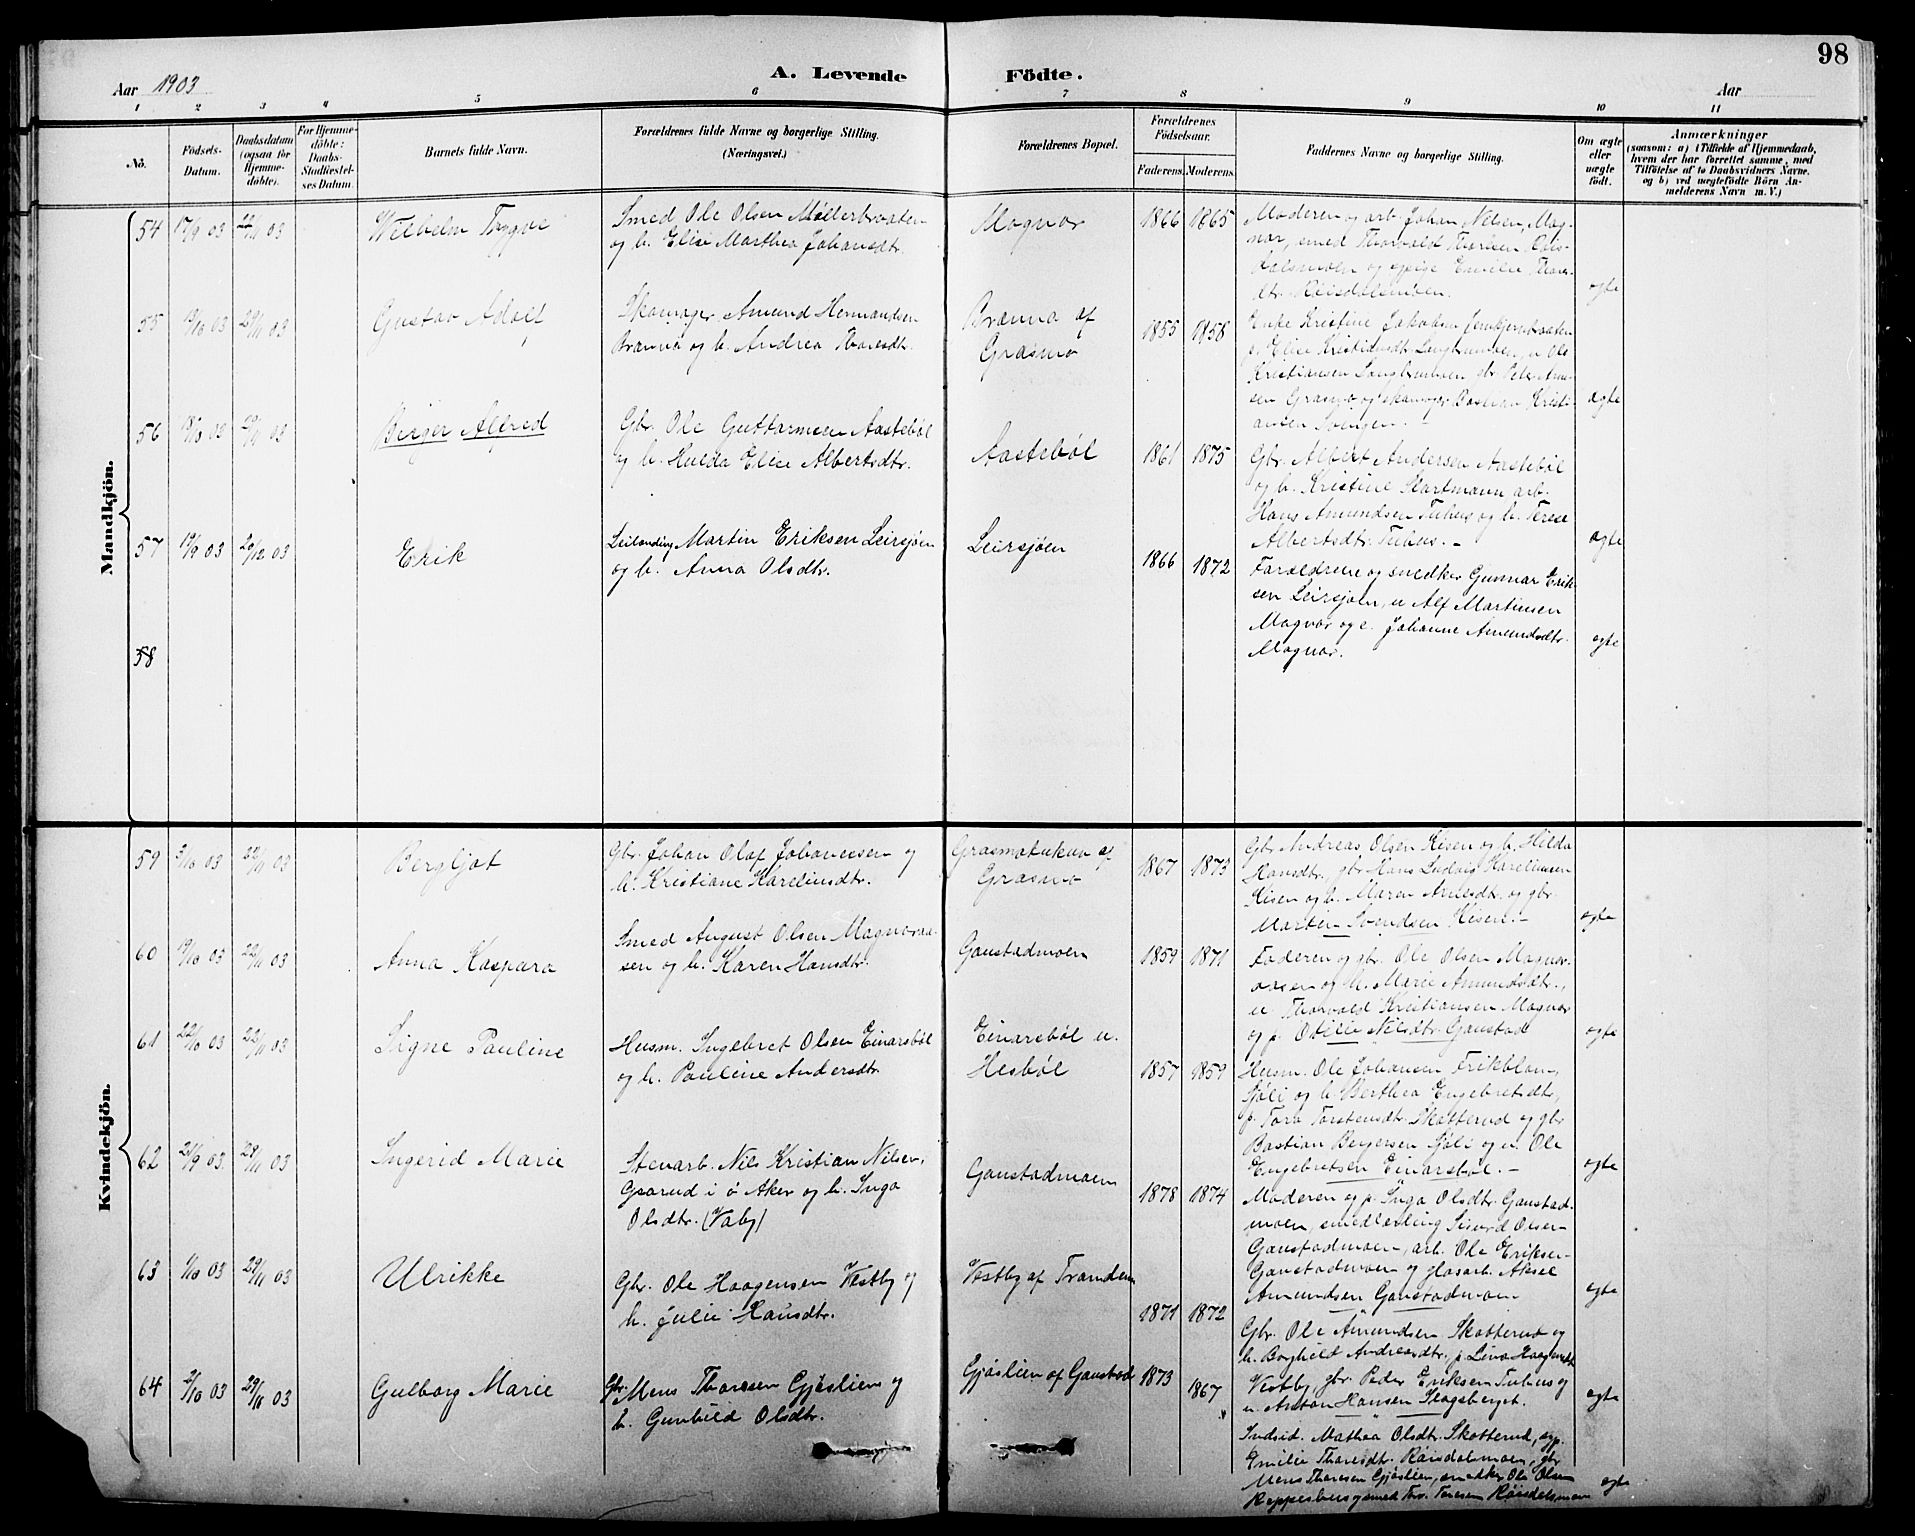 98
Aar 1903
A. Levende Födte.
Aar
1 2 3 4 5 6 7 8 9 10 11
No.
Födsels-
Datum.
Daabsdatum
(ogsaa for
Hjemme-
döbte).
For Hjemme-
döbte:
Daabs-
Stadfæstel-
ses Datum.
Barnets fulde Navn.
Forældrenes fulde Navne og borgerlige Stilling.
(Næringsvei.)
Forældrenes Bopæl.
Forældrenes
Födselsaar.
Faderens. Moderens.
Faddernes Navne og borgerlige Stilling.
Om ægte
eller
uægte
født.
Anmærkninger
(saasom: a) i Tilfælde af Hjemmedaab,
hvem der har forrettet samme, med
Tilföielse af to Daabsvidners Navne.
og b) ved uægtefödte Börn An-
melderens Navn m. V.)
Mandkjön.
54 17/9 03 22/11 03
Wilhelm Trygve
Smed Ole Olsen
og h. Elise Marthea Johansdtr.
Magnor
1866 1865
Moderen og arb. Johan Nilsen, Mag-
nor, smed Thorvald Thoresen Røis-
dalsmoen og pige Emilie Thores-
dtr. Røisdalsmoen.
ægte
55 19/10 03 29/11 03
Gustav Adolf
Skomager Amund Hermandsen
Brænna og h. Andrea Thoresdtr.
Brænna af
Grasmo
1855 1858
Enke Kristine Jakobsen
p. Elise Kristiansdtr. Langbrumoen, u. Ole
Kristiansen Langbrumoen gbr. Peter
sen Grasmo og skomager Bastian Kristi-
ansen
ægte
56 18/10 03 29/11 03
Birger Alfred
Gbr. Ole Guttormsen Aastebøl
og h. Hulda Elise Albertsdtr.
Aastebøl
1861 1875
Gbr. Albert Andersen Aastebøl
og h. Kristine Startmann arb.
Hans Amundsen Tuhus og h. Terese
Albertsdtr. Tuhus. -
ægte
57 19/9 03 20/12 03
Erik
Leilending Martin Eriksen Leirsjøen
og h. Anna Olsdtr.
Leirsjøen
1866 1872
Forældrene og snedker Gunnar Erik-
sen Leirsjøen, u. Alf Martinsen
Magnor og p. Johanne Amundsdtr.
Magnor.
ægte
58
Kvindekjön.
59 3/10 03 22/11 03
Bergljot
Gbr. Johan Olaf Johannesen og
h. Kristiane Karelinsdtr.
Grasmo
1867 1873
Gbr. Andreas Olsen Kisen og h. Hilda
Hansdtr., gbr. Hans Ludvig Karelinsen
Kisen og h. Maren Arnesdtr. og gbr.
Martin Svendsen Kisen. -
ægte
60 19/10 03 22/11 03
Anna Kaspara
Smed August Olsen Magnoraa-
sen og h. Karen Hansdtr.
Gaustadmoen
1859 1871
Faderen og gbr. Ole Olsen Magnor-
aasen og h. Marie Amundsdtr.,
u. Thorvald Kristiansen Magnor
og p. Otilie Nilsdtr. Gaustad
ægte
61 22/10 03 22/11 03
Signe Pauline
Husm. Ingebret Olsen Einarsbøl
og h. Pauline Andersdtr.
Einarsbøl u.
Hesbøl
1857 1859
Husm. Ole Johansen
Sjøli og h. Berthea Engebretsdtr.,
p. Tora Torstensdtr. Skotterud og gbr.
Bastian Bergersen Sjøli og u. Ole
Engebretsen Einarsbøl. -
ægte
62 21/9 03 29/11 03
Ingerid Marie
Stenarb. Nils Kristian Nilsen,
i ø. Aker og h. Inga
Olsdtr. (Vaby)
Gaustadmoen
1878 1874
Moderen og p. Inga Olsdtr. Gaustad-
moen, smedlesling Sivord Olsen
Gaustadmoen, arb. Ole Eriksen
Gaustadmoen og glasarb. Aksel
Amundsen Gaustadmoen
ægte
63 1/10 03 29/11 03
Ulrikke
Gbr. Ole Haagensen Vestby og
h. Julie Hansdtr.
Vestby af Tranden
1871 1872
Gbr. Ole Amundsen Skotterud og
h. Borghild Andreasdtr. p. Lina Haagensdtr.
Vestby, gbr. Peder Eriksen Tuhus og
u. Anton Hansen Skogsberget.
ægte
64 2/10 03 29/11 03
Gulborg Marie
Gbr. Mons Thoresen Gjøslien og
h. Gunhild Olsdtr.
Gjøslien af Gaustad
1873 1867
Indsid. Mathea Olsdtr. Skotterud, og p.
Emilie Thoresdtr. Røisdalsmoen, gbr.
Mons Thoresen Gjøslien, snedker Ole Olsen
og smed Torv. Toresen Røisdalsmoen
ægte